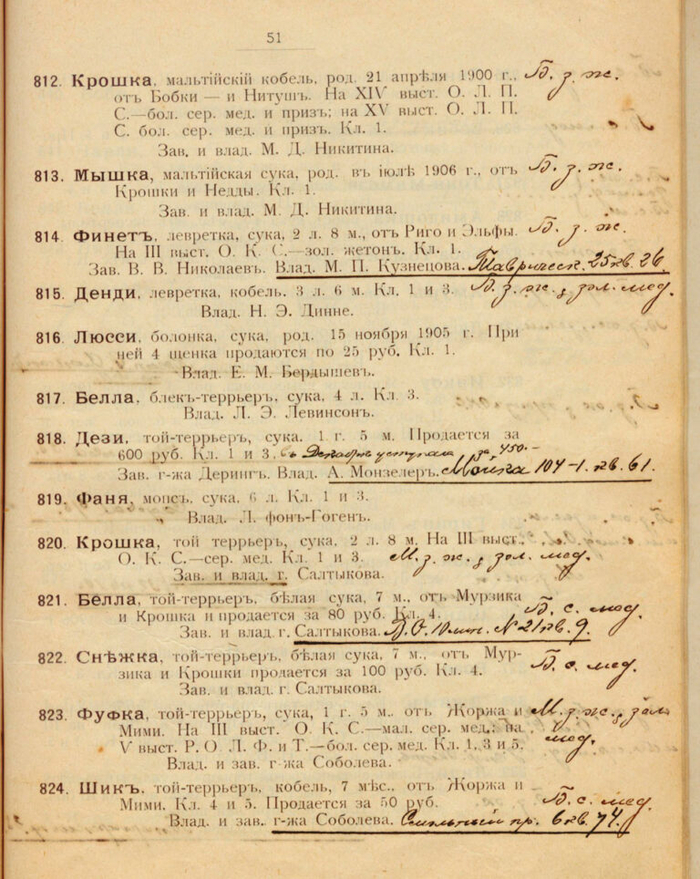 51
812. Крошка, мальтійскій кобель, род. 21 апрѣля 1900 г., Б. з. ж.
отъ Бобки — и Нитушъ. На XIV выст. О. Л. П.
С.—бол. сер. мед. и призъ; на XV выст. О. Л. П.
С. бол. сер. мед. и призъ. Кл. 1.
Зав. и влад. М. Д. Никитина.
813. Мышка, мальтійская сука, род. въ іюлѣ 1906 г., отъ Б. з. ж.
Крошки и Недды. Кл. 1.
Зав. и влад. М. Д. Никитина.
814. Финетъ, левретка, сука, 2 л. 8 м., отъ Риго и Эльфы. Б. з. ж.
На III выст. О. К. С.—зол. жетонъ. Кл. 1.
Зав. В. В. Николаевъ. Влад. М. П. Кузнецова. Тавричесk. 25 кв. 26.
815. Денди, левретка, кобель, 3 л. 6 м. Кл. 1 и 3. Б. з. ж. зол. мед.
Влад. Н. Э. Динне.
816. Люсси, болонка, сука, род. 15 ноября 1905 г. При
ней 4 щенка продаются по 25 руб. Кл. 1.
Влад. Е. М. Бердышевъ.
817. Белла, блекъ-террьеръ, сука, 4 л. Кл. 3.
Влад. Л. Э. Левинсонъ.
818. Дези, той-террьеръ, сука, 1 г. 5 м. Продается за
600 руб. Кл. 1 и 3. за 450.—
Зав. г-жа Дерингъ. Влад. А. Монзелеръ. Мойка 104-1. кв. 61.
819. Фаня, мопсъ, сука, 6 л. Кл. 1 и 3.
Влад. Л. фонъ-Гогенъ.
820. Крошка, той террьеръ, сука, 2 л. 8 м. На III выст.
О. К. С.—сер. мед. Кл. 1 и 3. М. з. ж. зол. мед.
Зав. и влад. г. Салтыкова.
821. Белла, той-террьеръ, бѣлая сука, 7 м., отъ Мурзика Б. с. мед.
и Крошка и продается за 80 руб. Кл. 4.
Зав. и влад. г. Салтыкова. В. О. 10 лин. № 21 кв. 9.
822. Снѣжка, той-террьеръ, бѣлая сука, 7 м., отъ Мур- Б. с. мед.
зика и Крошки продается за 100 руб. Кл. 4.
Зав. и влад. г. Салтыкова.
823. Фуфка, той-террьеръ, сука, 1 г. 5 м., отъ Жоржа и М. з. ж. зол.
Мими. На III выст. О. К. С.—мал. сер. мед.; на мед.
V выст. Р. О. Л. Ф. и Т.—бол. сер. мед. Кл. 1, 3 и 5.
Влад. и зав. г жа Соболева.
824. Шикъ, той-террьеръ, кобель, 7 мѣс., отъ Жоржа и
Мими. Кл. 4 и 5. Продается за 50 руб. Б. с. мед.
Влад. и зав. г-жа Соболева. пр. 6 кв. 74.